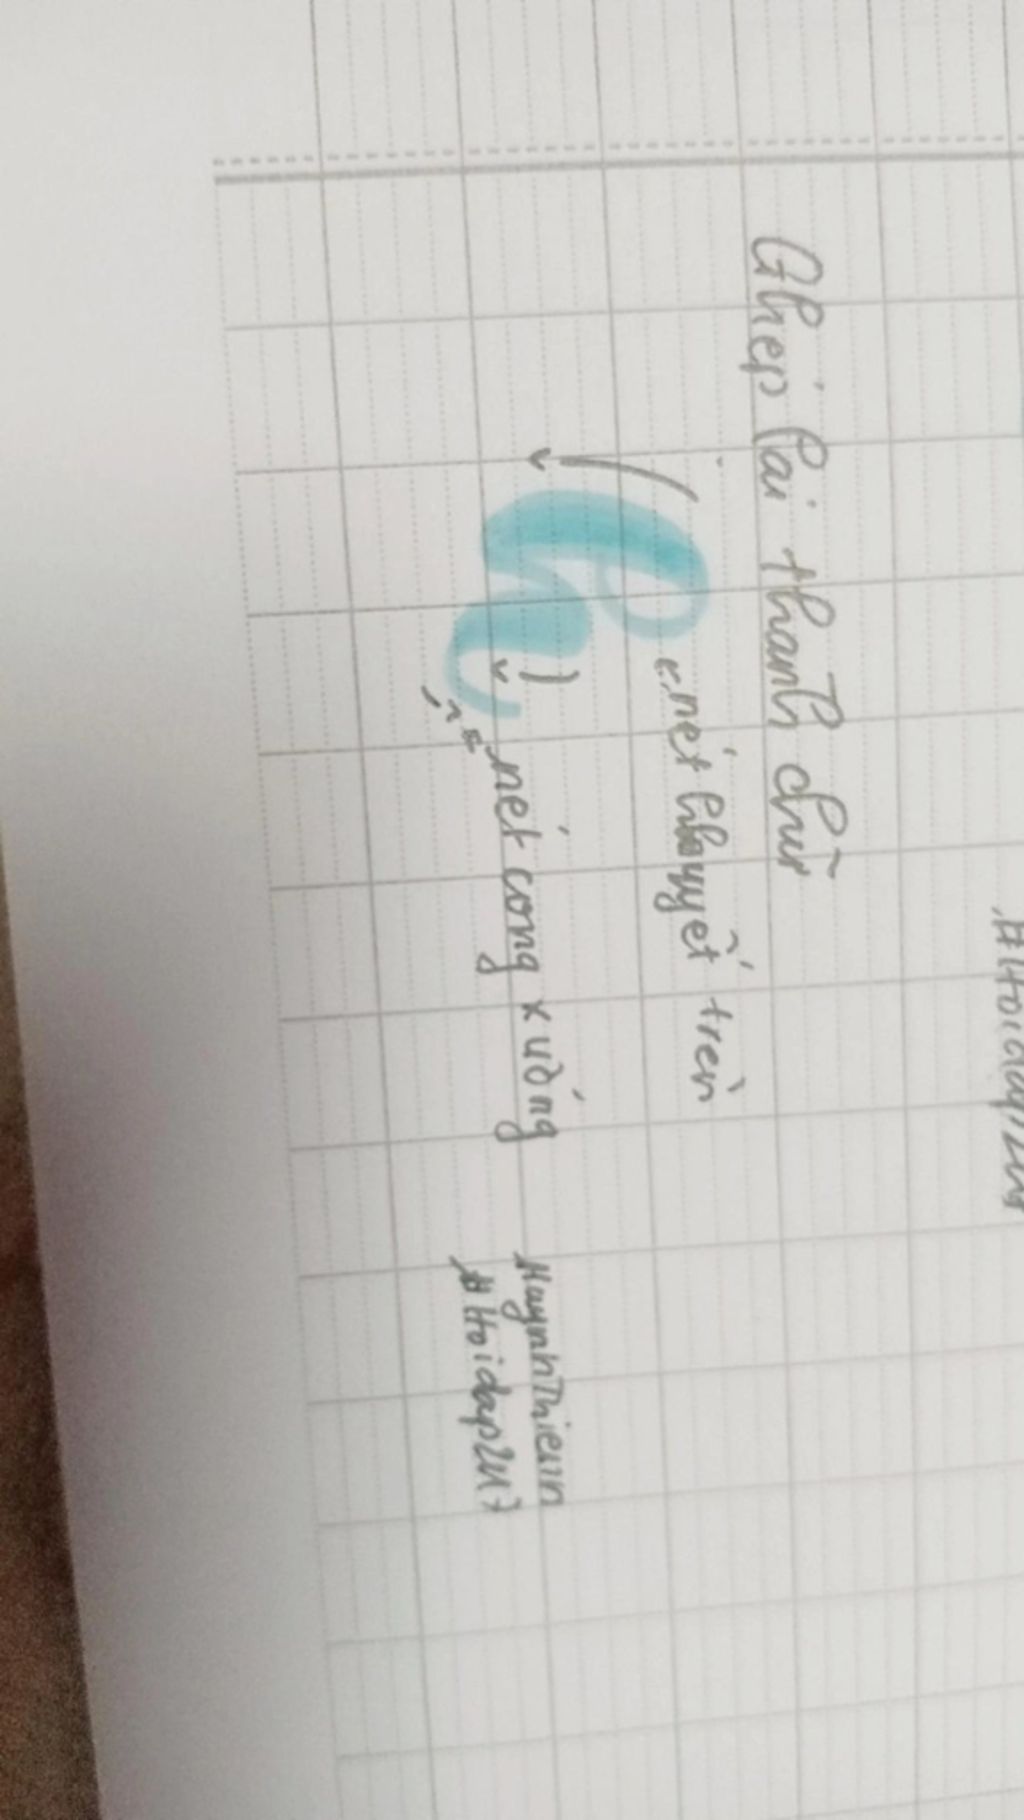 #Hoidap247
Ghép lại thành chữ
h
nét khuyết trên
nét cong xuống
HuynhThienn
#Hoidap247